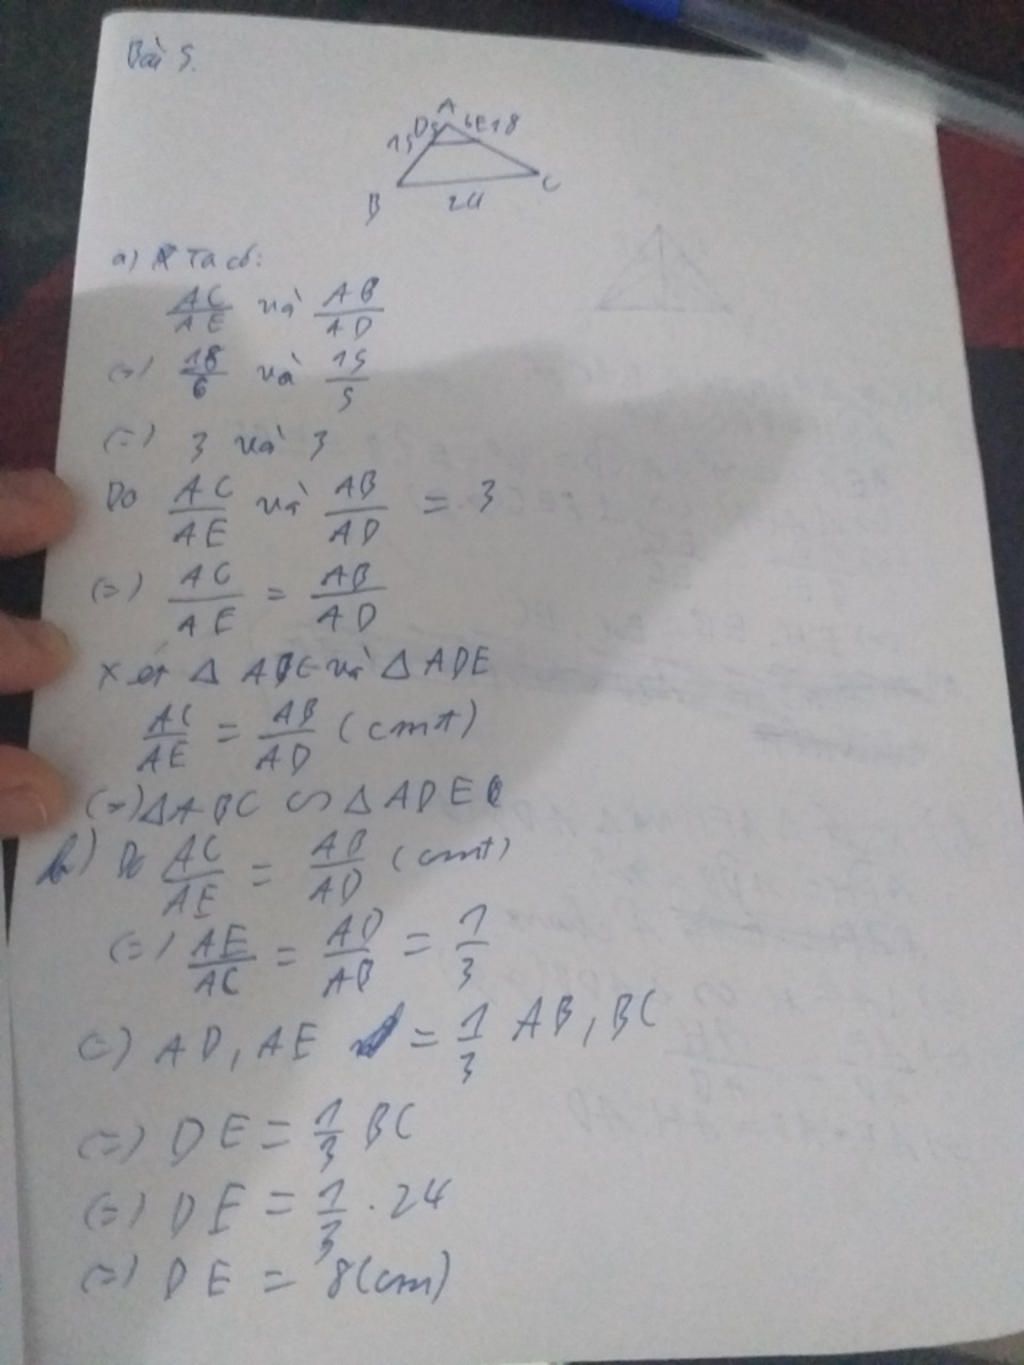 Bài 5.
A
D 5 6 E 18
15
B 24 C
a) Ta có:
AC/AE và AB/AD
(=) 18/6 và 15/5
(=) 3 và 3
Do AC/AE và AB/AD = 3
(=) AC/AE = AB/AD
Xét Δ ABE và Δ ADE
AC/AE = AB/AD (cmt)
(=) Δ ABC ∽ Δ ADE
b) Do AC/AE = AB/AD (cmt)
(=) AE/AC = AD/AB = 1/3
c) AD, AE = 1/3 AB, BC
(=) DE = 1/3 BC
(=) DE = 1/3 . 24
(=) DE = 8(cm)